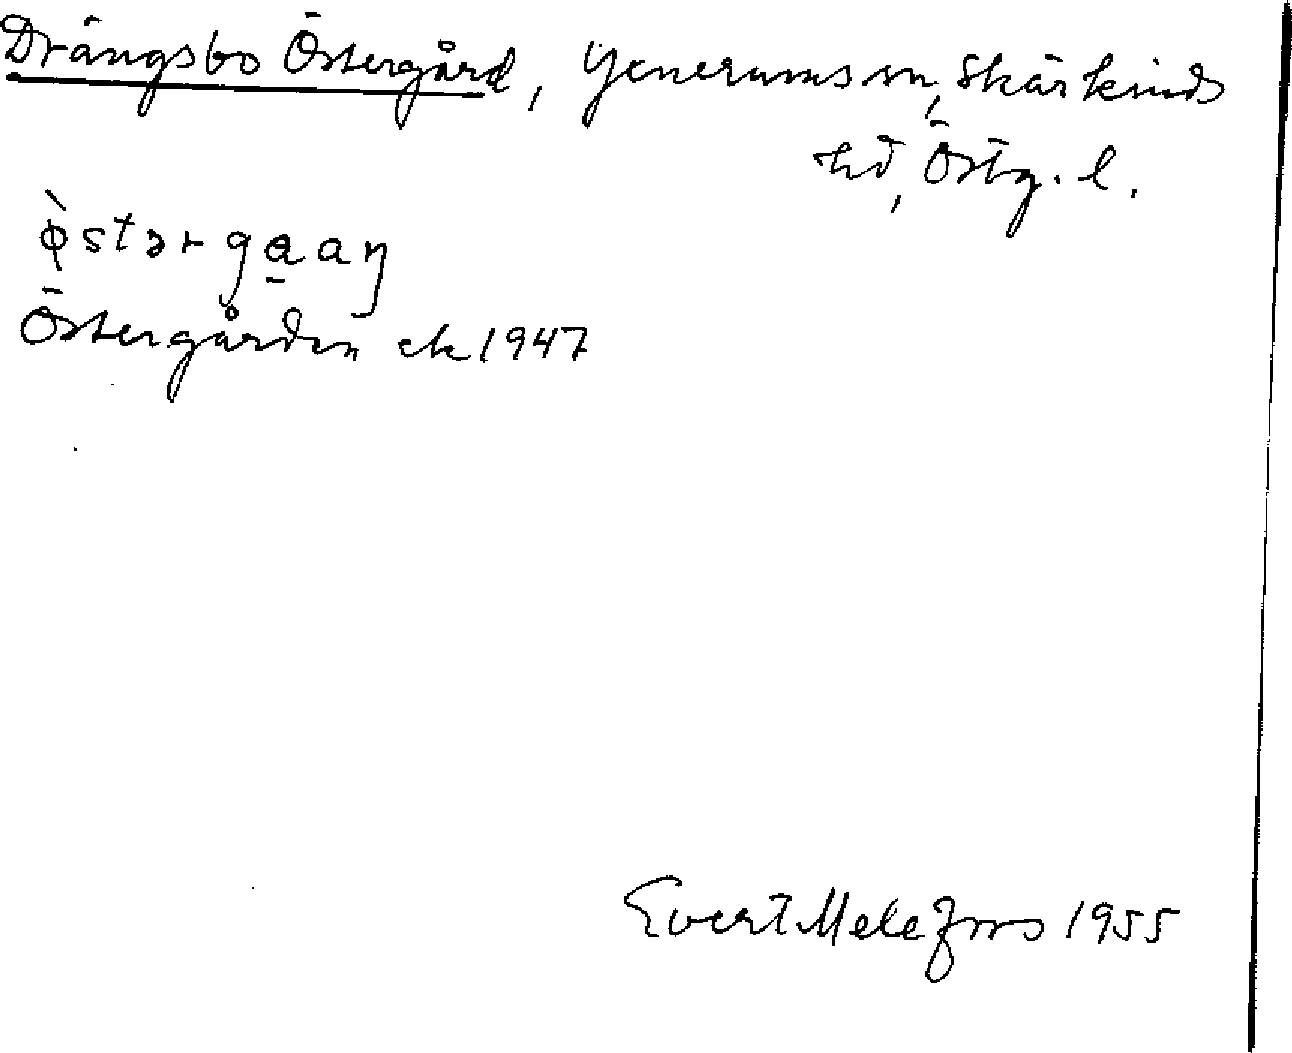 Drängsbo Östergård, Yxnerums sn, Skärkinds
hd, Östg. l.
ø̀stərga̠aŋ
Östergården ek 1947
Evert Melefors 1955